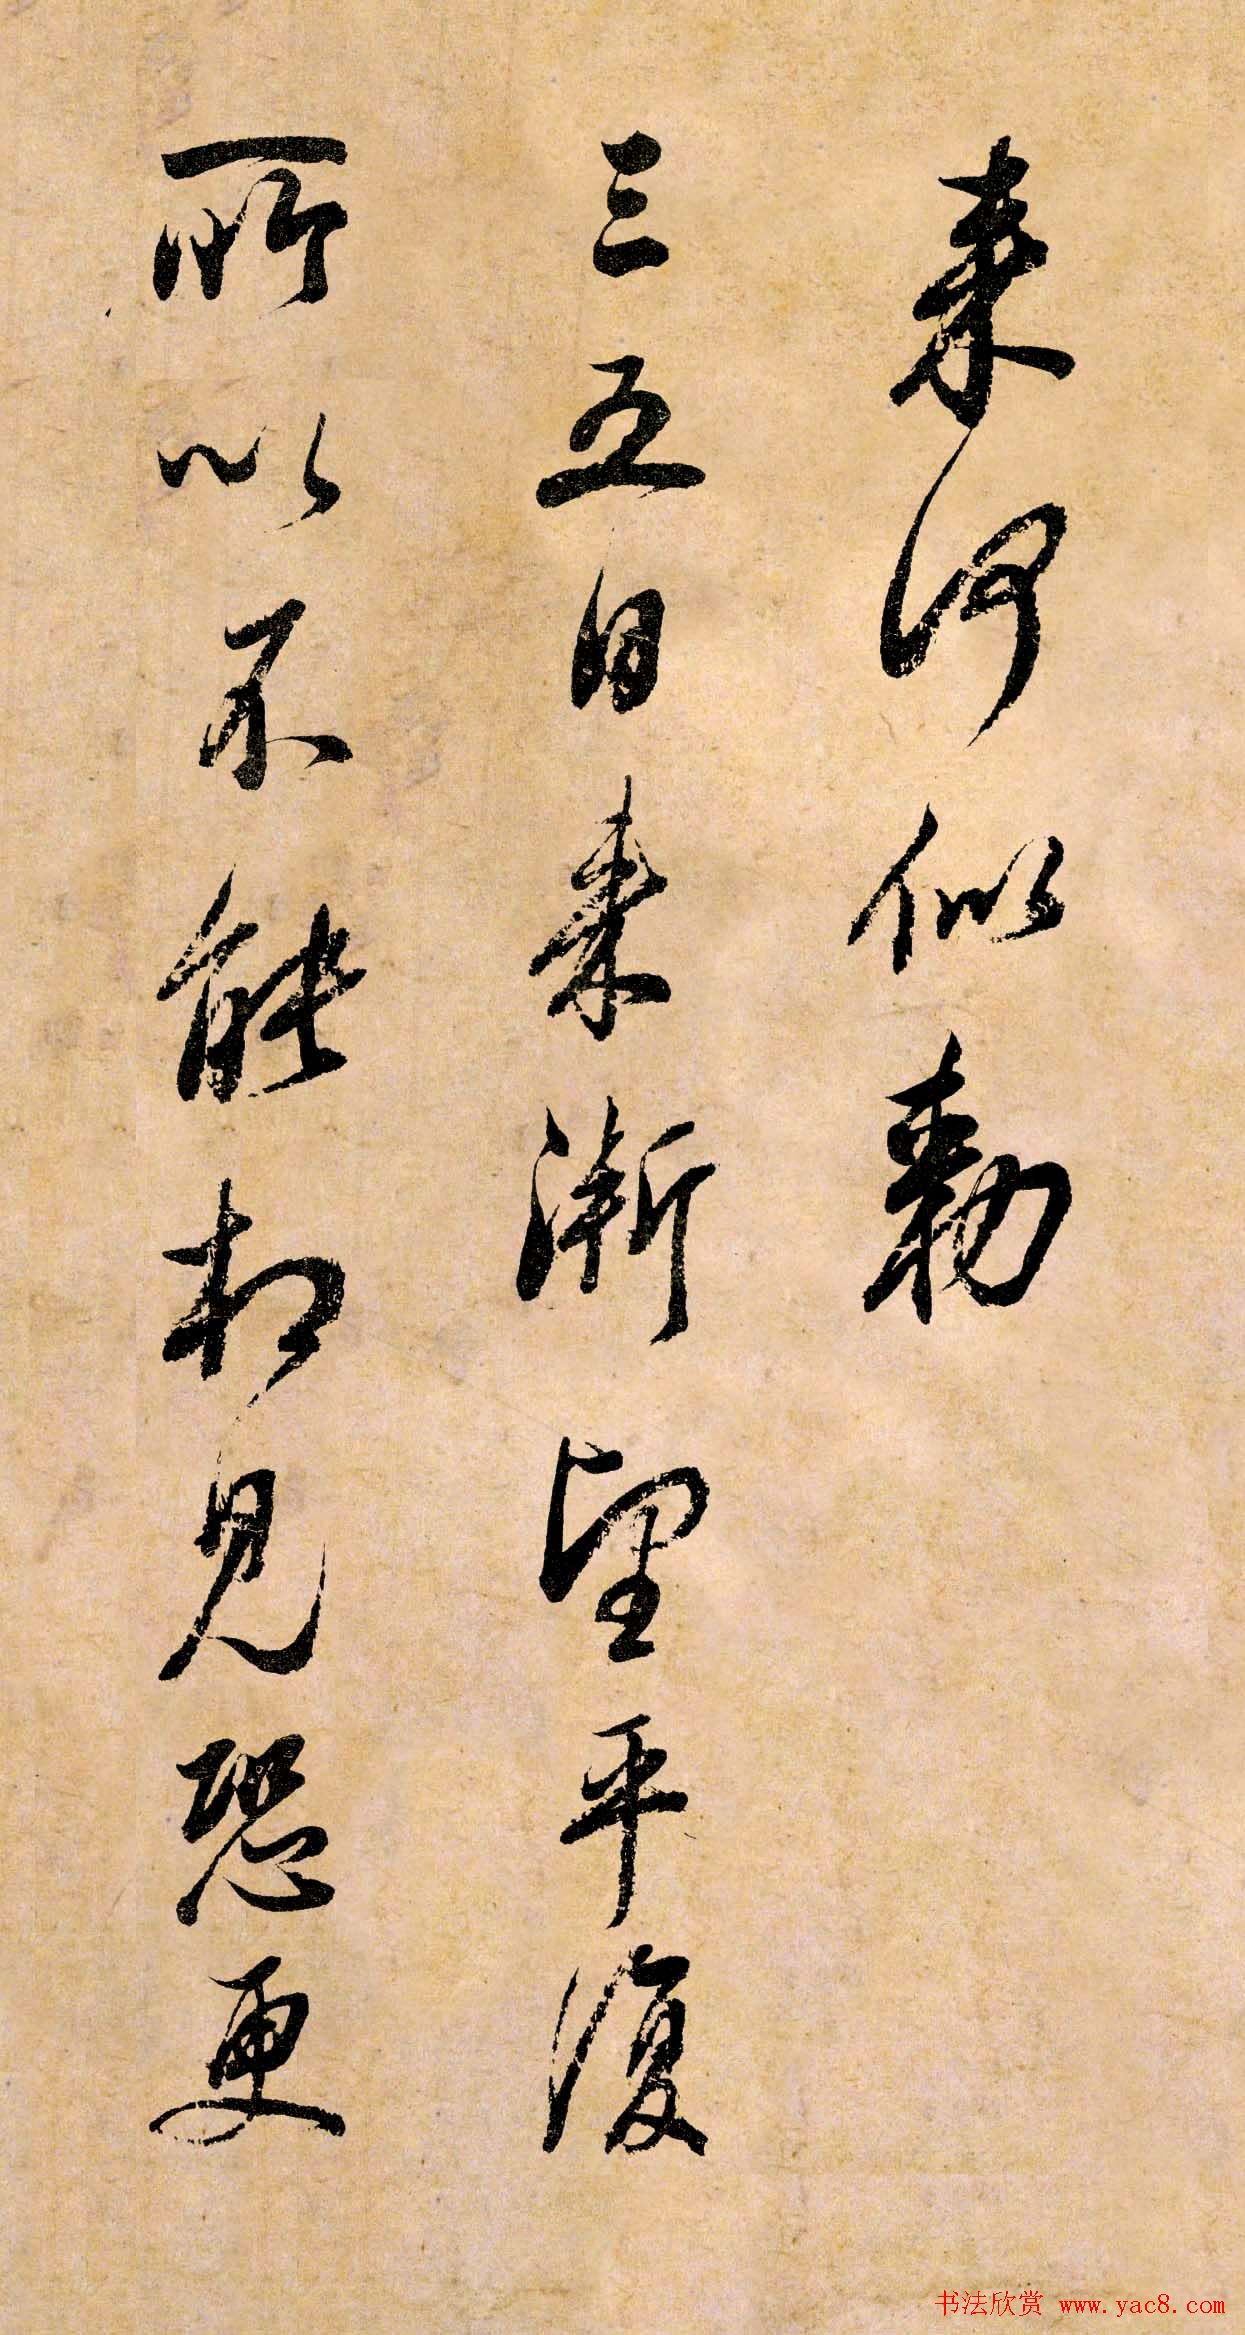 来河似勅
三五日来漸望平復
所以不能相見恐更
书法欣赏 www.yac8.com